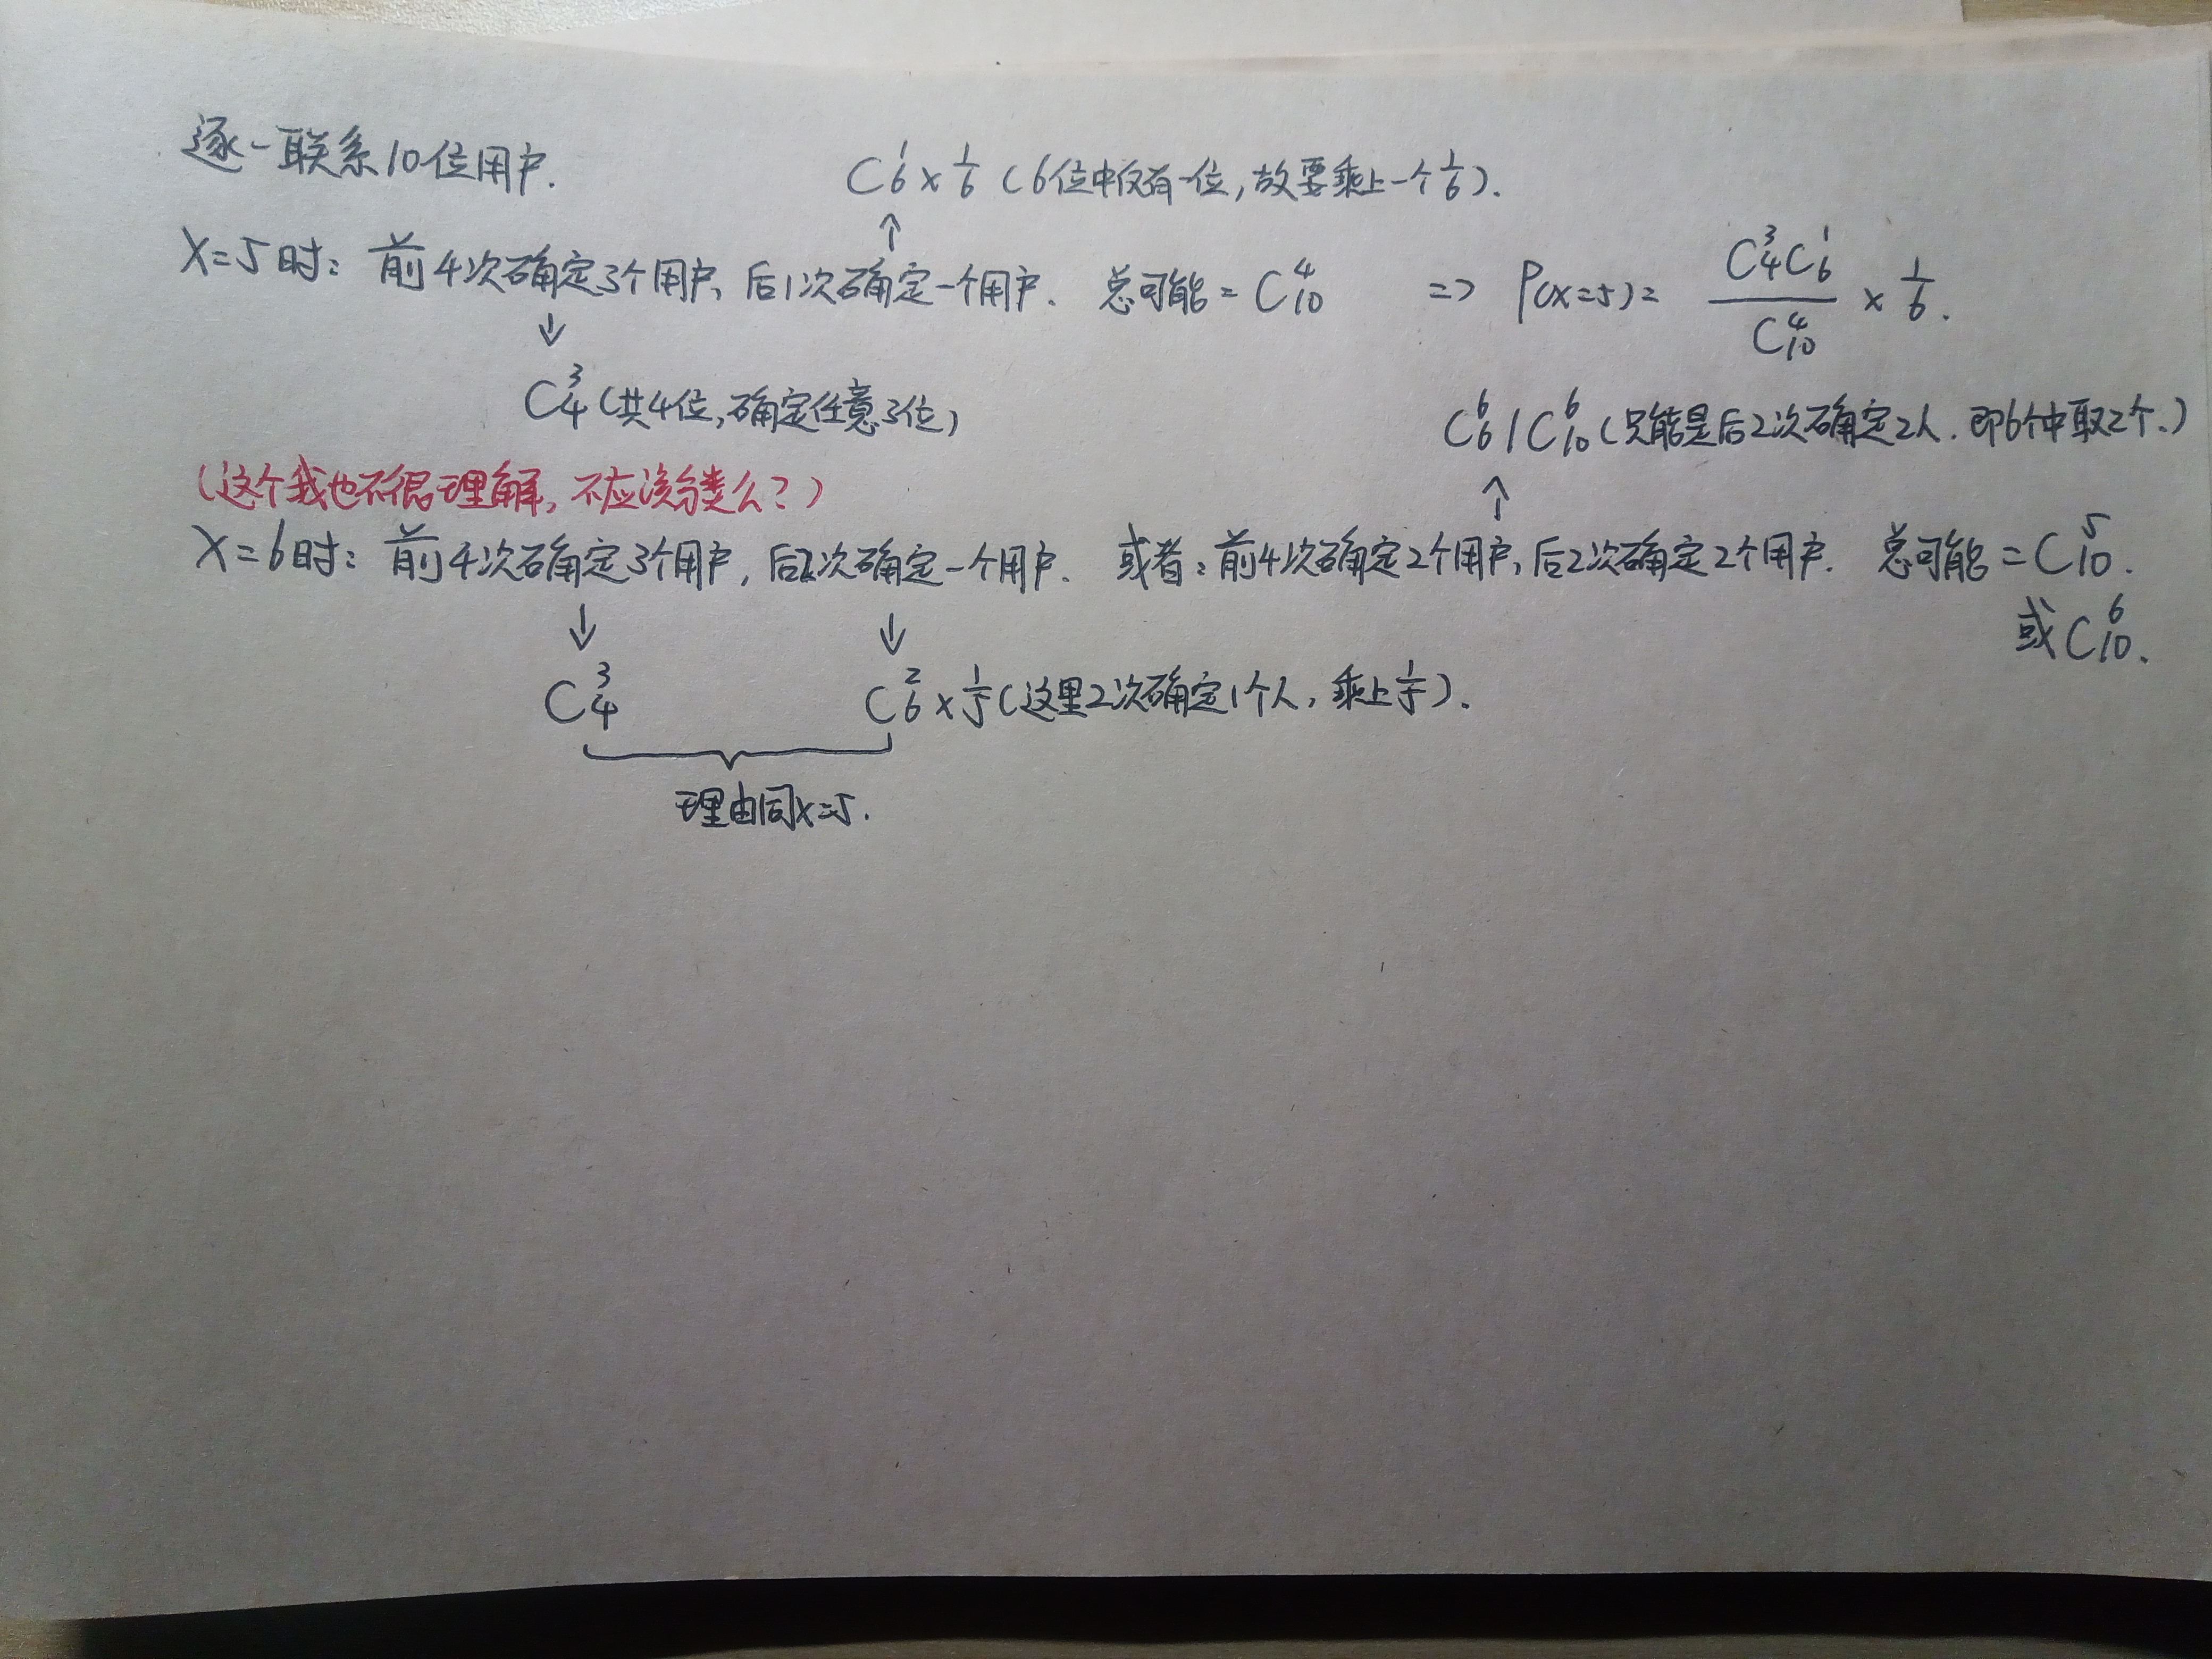 逐一联系10位用户.
C₆¹×1/6 (6位中仅有一位,故要乘上一个1/6).
↑
X=5时: 前4次确定3个用户, 后1次确定一个用户. 总可能=C₁₀⁴ => P(X=5)= C₄³C₆¹/C₁₀⁴ × 1/6.
↓
C₄³ (共4位,确定任意3位)
C₆⁶/C₁₀⁶ (只能是后2次确定2人.即6个中取2个.)
(这个我也不很理解, 不应该分类么?)
↑
X=6时: 前4次确定3个用户, 后2次确定一个用户. 或者: 前4次确定2个用户, 后2次确定2个用户. 总可能=C₁₀⁵.
或C₁₀⁶.
↓ ↓
C₄³ C₆²×1/5 (这里2次确定1个人, 乘上1/5).
理由同X=5.